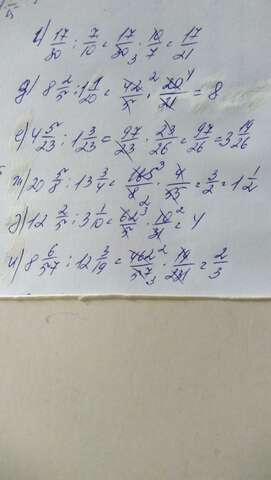 г) 17/30 : 7/10 = 17/30 3 · 10/7 = 17/21
д) 8 2/5 : 1 1/20 = 42/5 2 · 20/21 4 = 8
е) 4 5/23 : 1 3/23 = 97/23 · 23/26 = 97/26 = 3 19/26
ж) 20 5/8 : 13 3/4 = 165/8 3 · 4/55 = 3/2 = 1 1/2
з) 12 2/5 : 3 1/10 = 62/5 2 · 10/31 2 = 4
и) 8 6/57 : 12 3/19 = 462/57 2 3 · 19/231 = 2/3